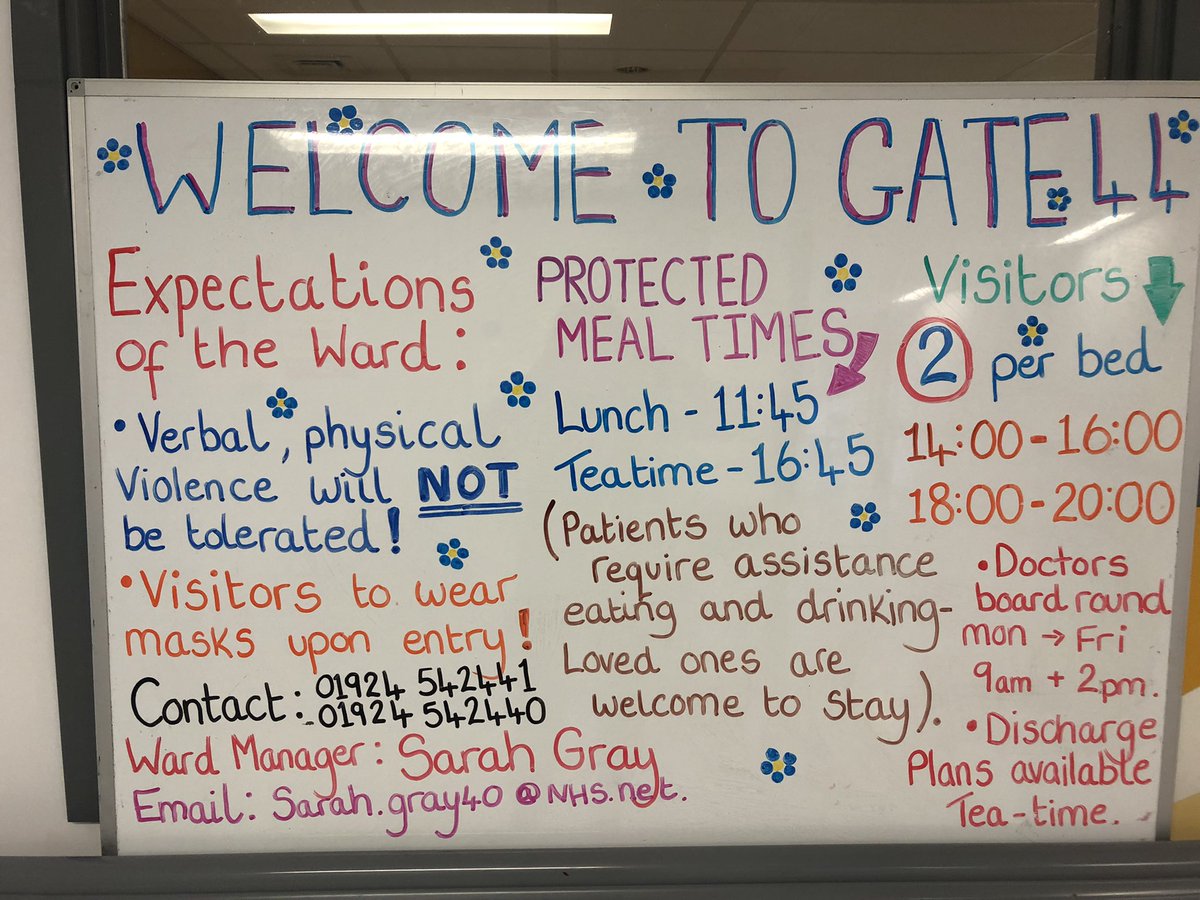 WELCOME TO GATE 44
Expectations
of the Ward:
• Verbal, physical
Violence will NOT
be tolerated!
• Visitors to wear
masks upon entry!
Contact: 01924 542441
01924 542440
Ward Manager: Sarah Gray
Email: Sarah.gray40@NHS.net.
PROTECTED
MEAL TIMES
Lunch - 11:45
Teatime - 16:45
(Patients who
require assistance
eating and drinking-
Loved ones are
welcome to stay).
Visitors
2 per bed
14:00-16:00
18:00-20:00
• Doctors
board round
mon → Fri
9am + 2pm.
• Discharge
Plans available
Tea-time.